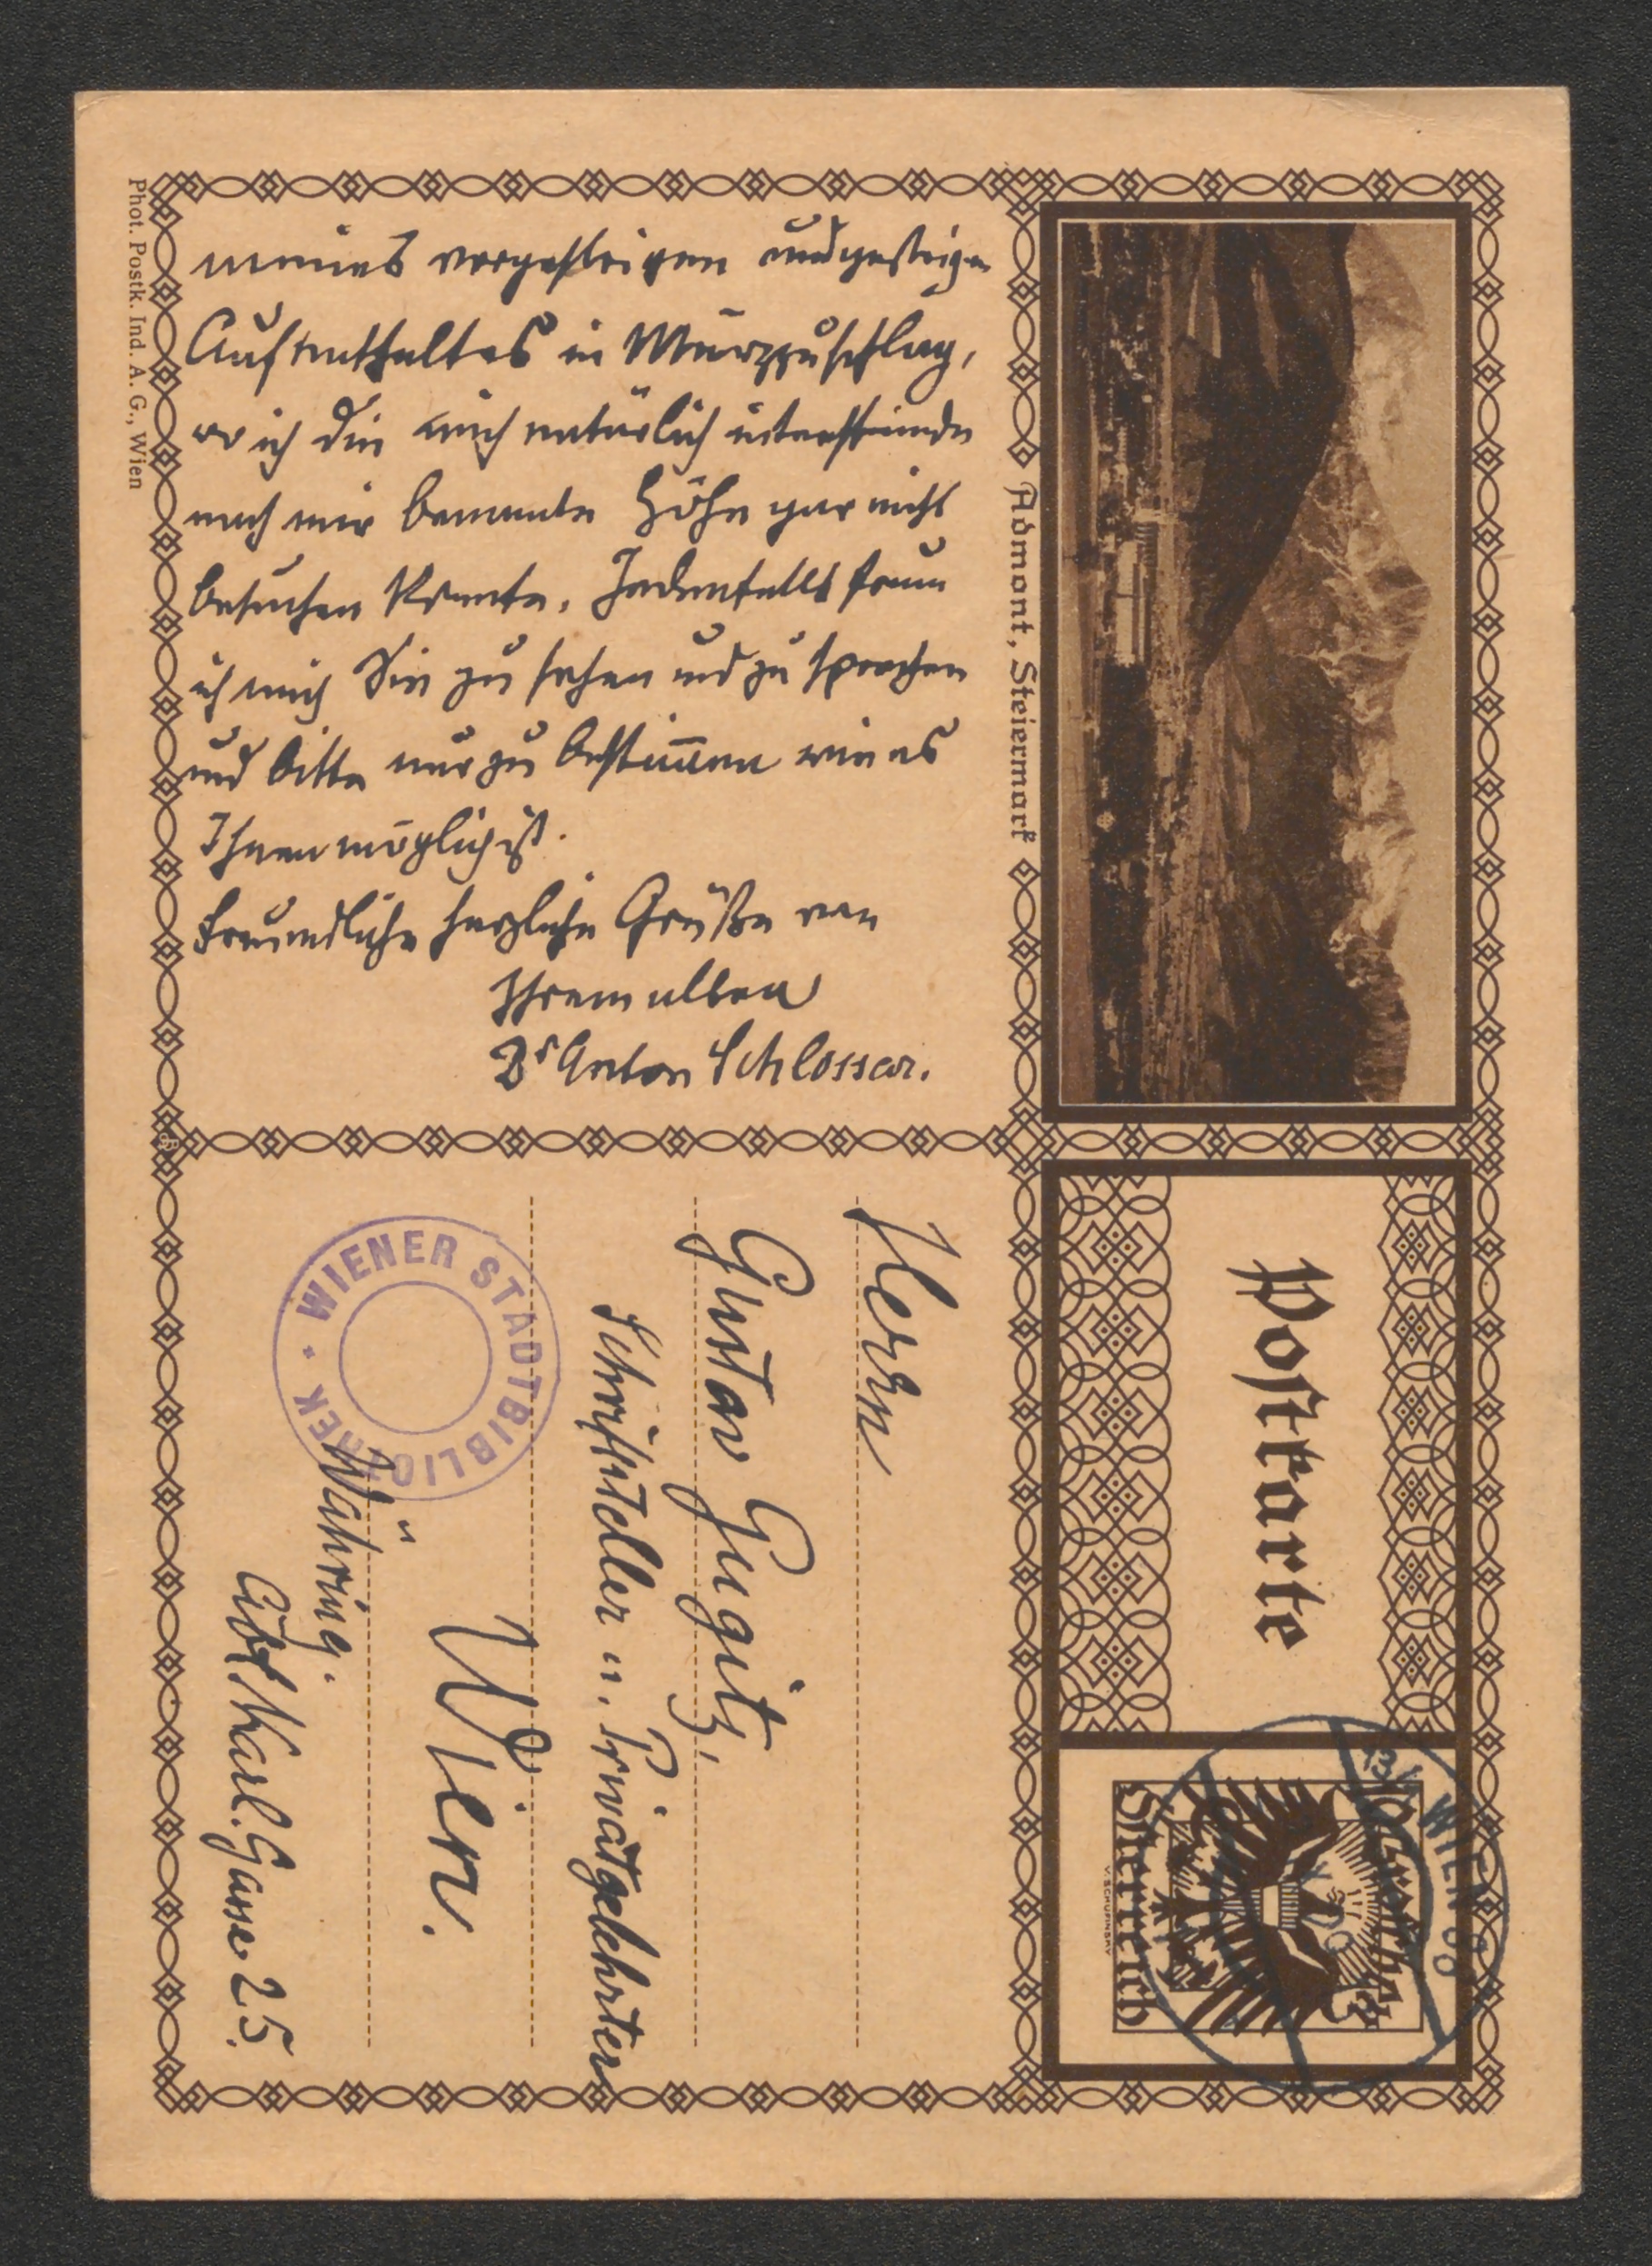 meines vorgestrigen und gestrigen
Aufenthaltes in Mürzzuschlag,
wo ich die mich natürlich
nach mir benannte Höhe gar nicht
besuchen konnte. Jedenfalls freue
ich mich Sie zu sehen und zu sprechen
und bitte nur zu bestimmen wie es
Ihnen möglich ist.
Freundliche herzliche Grüße von
Ihrem alten
Dr Anton Schlossar.
Phot. Postk. Ind. A. G., Wien
Admont, Steiermark
Postkarte
Österreich
V. SCHUFINSKY
WIEN
Herrn
Gustav Gugitz,
Schriftsteller u. Privatgelehrten
Wien.
Währing.
Abt Karl. Gasse 25.
WIENER STADTBIBLIOTHEK